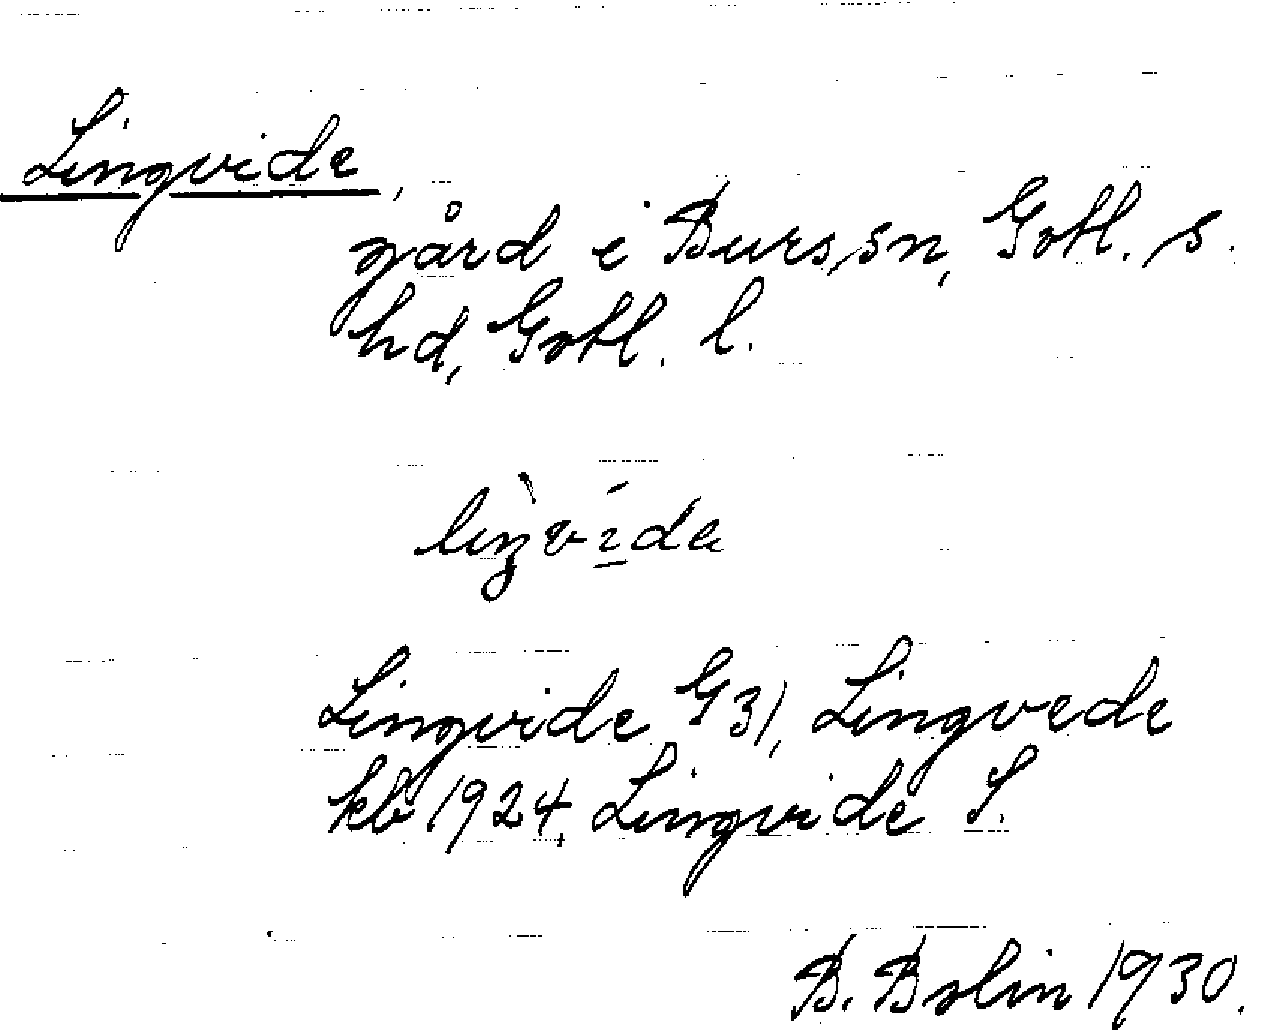 Lingvide,
gård i Burs sn, Gotl. s.
hd, Gotl. l.
lìŋvída
Lingvide G 31, Lingvede
kb 1924, Lingvide S.
B. Bolin 1930.